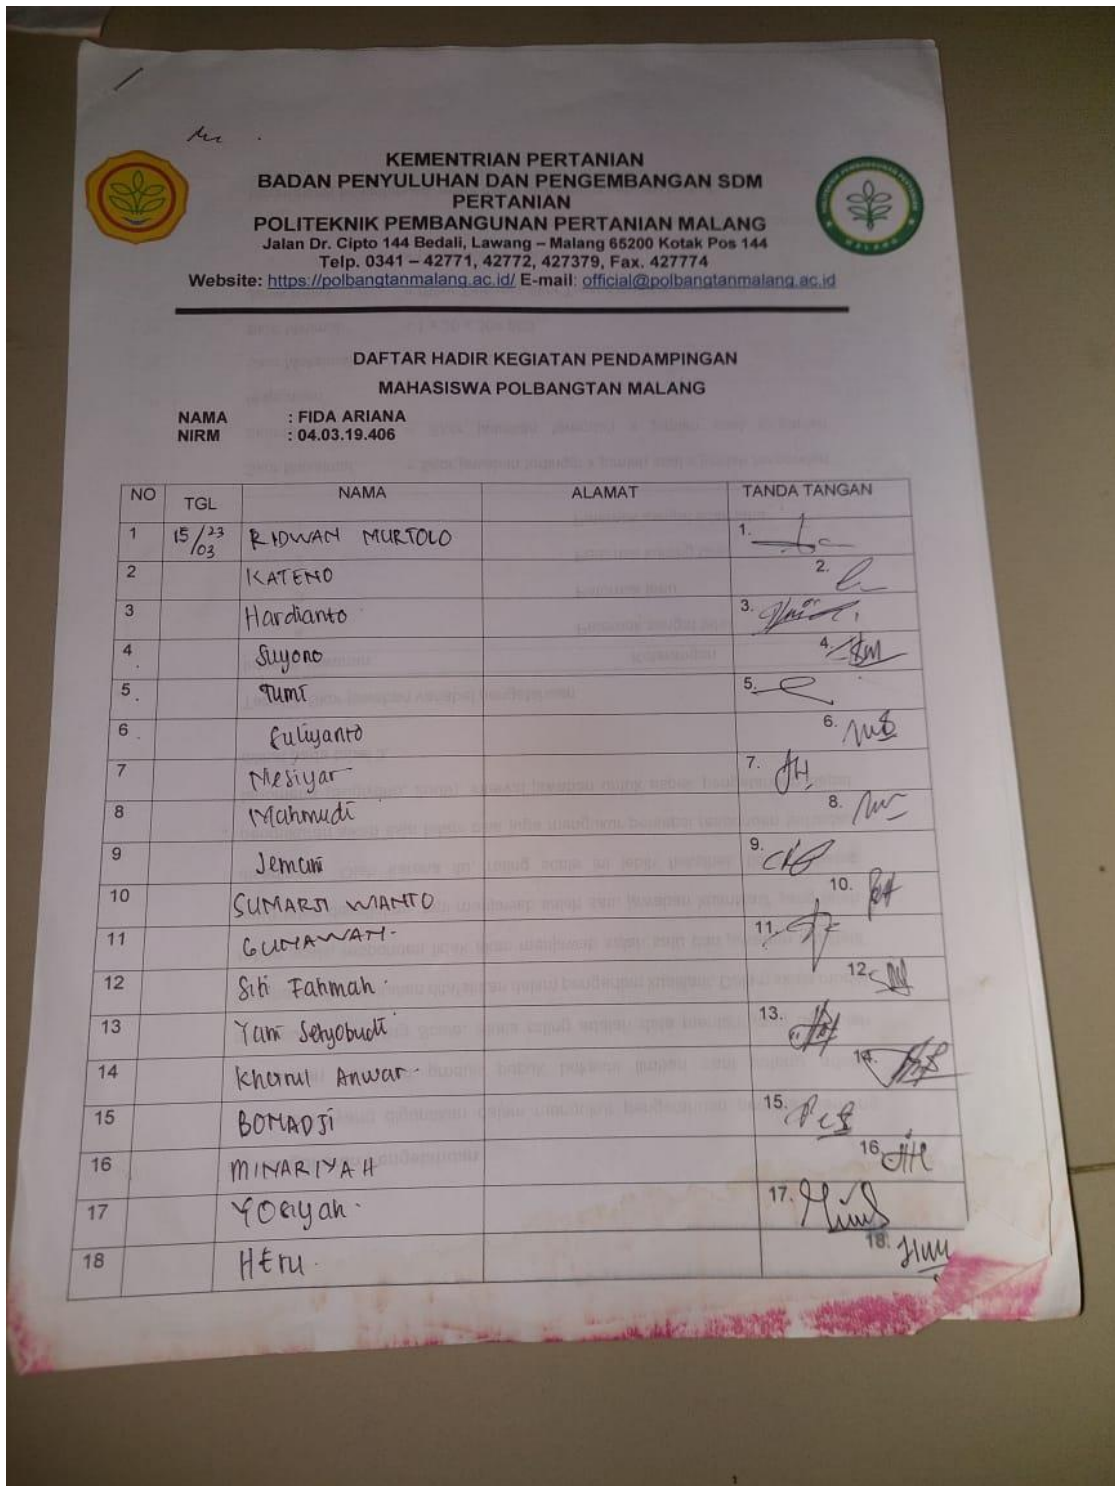 KEMENTRIAN PERTANIAN
BADAN PENYULUHAN DAN PENGEMBANGAN SDM
PERTANIAN
POLITEKNIK PEMBANGUNAN PERTANIAN MALANG
Jalan Dr. Cipto 144 Bedali, Lawang – Malang 65200 Kotak Pos 144
Telp. 0341 – 42771, 42772, 427379, Fax. 427774
Website: https://polbangtanmalang.ac.id/ E-mail: official@polbangtanmalang.ac.id
DAFTAR HADIR KEGIATAN PENDAMPINGAN
MAHASISWA POLBANGTAN MALANG
NAMA : FIDA ARIANA
NIRM : 04.03.19.406
NO TGL NAMA ALAMAT TANDA TANGAN
1 15/03 23 RIDWAN MURTOLO 1.
2 KATENO 2.
3 Hardianto 3.
4 Suyono 4.
5 Tumi 5.
6 Suliyanto 6.
7 Mesiyar 7.
8 Mahmudi 8.
9 Jemani 9.
10 SUMARJI WANTO 10.
11 GUNAWAN- 11.
12 Siti Fatimah. 12.
13 Yani Setyobudi 13.
14 Khoirul Anwar. 14.
15 BOMADJI 15.
16 MINARIYAH 16.
17 17.
18 HERU. 18.